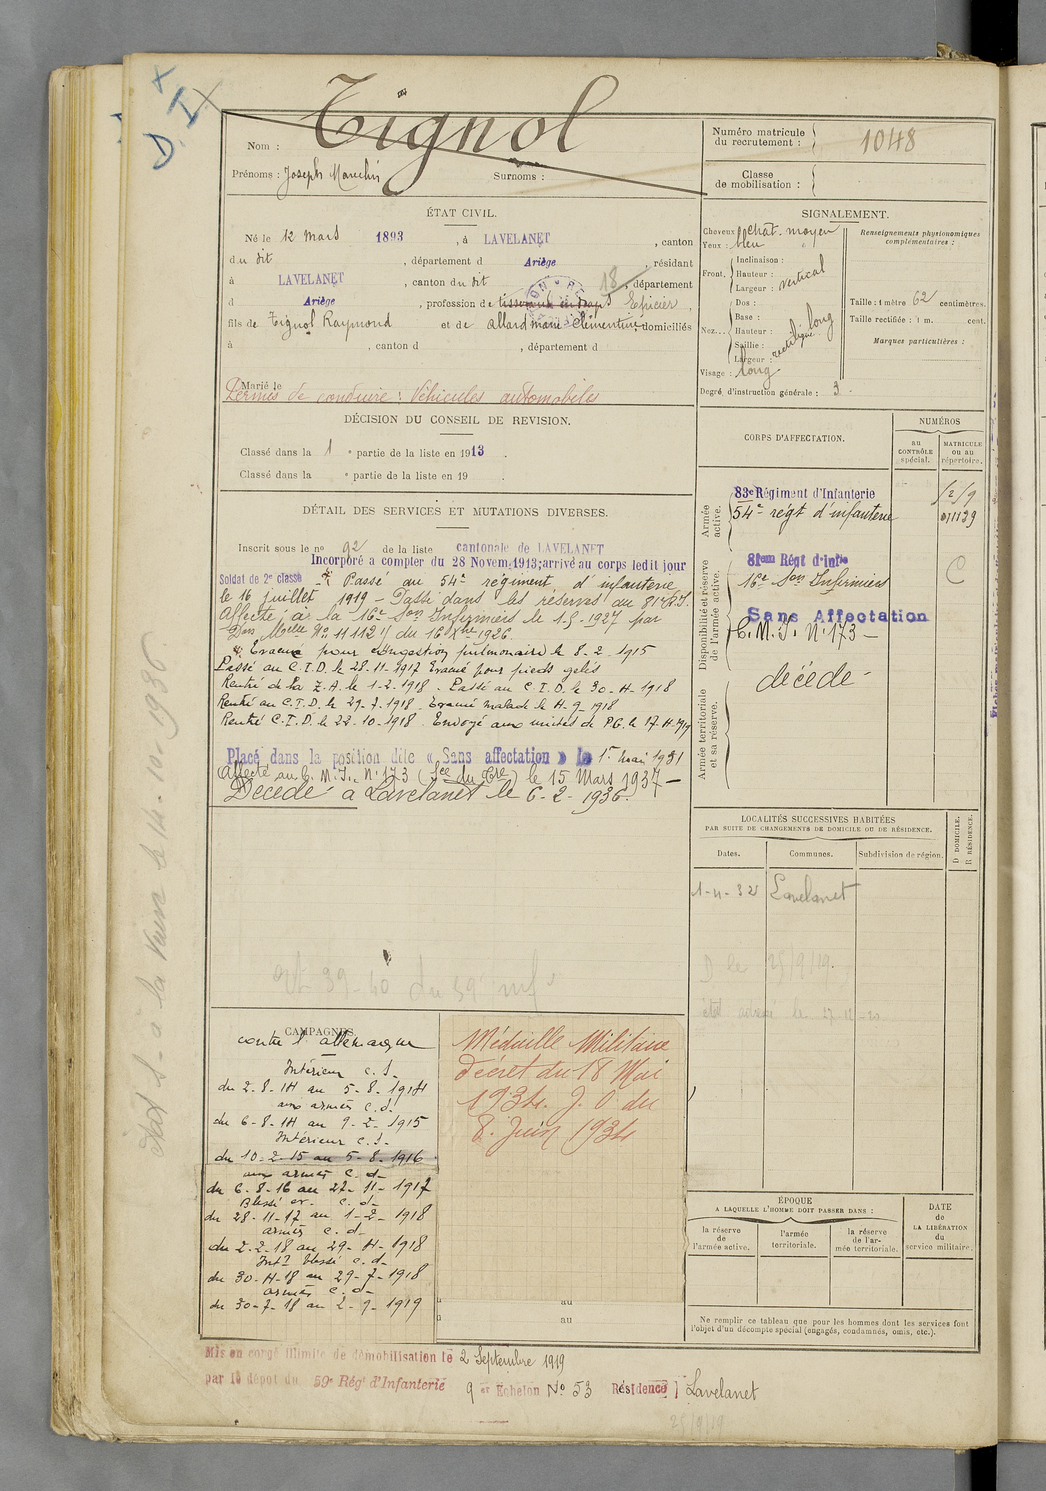 D. I
Tignol
Nom :
Prénoms : Joseph
Surnoms :
Numéro matricule
du recrutement : 1048
Classe
de mobilisation :
ÉTAT CIVIL.
Né le 12 mars 1893, à LAVELANET, canton
du dit, département d Ariège, résidant
à LAVELANET, canton du dit, département
d Ariège, profession de Epicier,
fils de Tignol Raymond et de Allard marie Clémentine domiciliés
à , canton d , département d
Marié le
Permis de conduire : Véhicules automobiles
DÉCISION DU CONSEIL DE REVISION.
Classé dans la 1 e partie de la liste en 1913.
Classé dans la e partie de la liste en 19 .
DÉTAIL DES SERVICES ET MUTATIONS DIVERSES.
Inscrit sous le n° 92 de la liste cantonale de LAVELANET
Incorporé à compter du 28 Novem. 1913; arrivé au corps ledit jour
Soldat de 2e classe Passé au 54e régiment d'infanterie
le 16 juillet 1919 - Passé dans les réserves au 81e R.I.
Affecté à la 16e Son Infirmiers le 1-5-1927 par
Don Melle No 11112/1 du 16 Xbre 1926.
Evacué pour congestion pulmonaire le 8-2-1915
Passé au C.I.D. le 28-11-1917 Evacué pour pieds gelés
Rentré de la Z.A. le 1-2-1918. Passé au C.I.D. le 30-4-1918
Rentré au C.I.D. le 29-7-1918 Evacué malade le 4-9-1918
Rentré C.I.D. le 22-10-1918. Envoyé aux unités de P.G. le 17-4-1919
Placé dans la position dite « Sans affectation » le 1er mai 1931
Affecté au C.M.I. N° 173 le 15 Mars 1937 -
Décédé à Lavelanet le 6-2-1936.
SIGNALEMENT.
Cheveux chât-moyen
Yeux : bleu
Front.
Inclinaison :
Hauteur : vertical
Largeur :
Nez...
Dos :
Base :
Hauteur : rectiligne long
Saillie :
Largeur :
Visage : long
Renseignements physionomiques
complémentaires :
Taille : 1 mètre 62 centimètres.
Taille rectifiée : 1 m. cent.
Marques particulières :
Degré d'instruction générale : 3
CORPS D'AFFECTATION.
NUMÉROS
au
CONTRÔLE
spécial.
MATRICULE
ou au
répertoire.
Armée
active.
83e Régiment d'Infanterie
54e régt d'infanterie
Disponibilité et réserve
de l'armée active.
81eme Régt d'Infie
16e Son Infirmiers
C
Sans Affectation
C.M.I. N° 173 -
Armée territoriale
et sa réserve.
décédé -
LOCALITÉS SUCCESSIVES HABITÉES
PAR SUITE DE CHANGEMENTS DE DOMICILE OU DE RÉSIDENCE.
D DOMICILE.
R RÉSIDENCE.
Dates.
Communes.
Subdivision de région.
Lavelanet
D le 25/9/19.
CAMPAGNES.
contre l'allemagne
Intérieur c. s.
du 2-8-14 au 5-8-1914
aux armées c. d.
du 6-8-14 au 9-2-1915
Intérieur c. s.
du 10-2-15 au 5-8-1916
aux armées c. d.
du 6-8-16 au 27-11-1917
du 28-11-17 au 1-2-1918
armées c. d.
du 2-2-18 au 29-4-1918
Intr blessé c. d.
du 30-4-18 au 29-7-1918
armées c. d.
du 30-7-18 au 2-9-1919
Médaille Militaire
décret du 18 Mai
1934. J. O du
8. Juin 1934
au
au
ÉPOQUE
A LAQUELLE L'HOMME DOIT PASSER DANS :
la réserve
de
l'armée active.
l'armée
territoriale.
la réserve
de l'ar-
mée territoriale.
DATE
de
LA LIBÉRATION
du
service militaire.
Ne remplir ce tableau que pour les hommes dont les services font
l'objet d'un décompte spécial (engagés, condamnés, omis, etc.).
Mis en congé illimité de démobilisation le 2 Septembre 1919
par le dépot du 59e Régt d'Infanterie
9 er Echelon No 53 Résidence Lavelanet
25/9/19